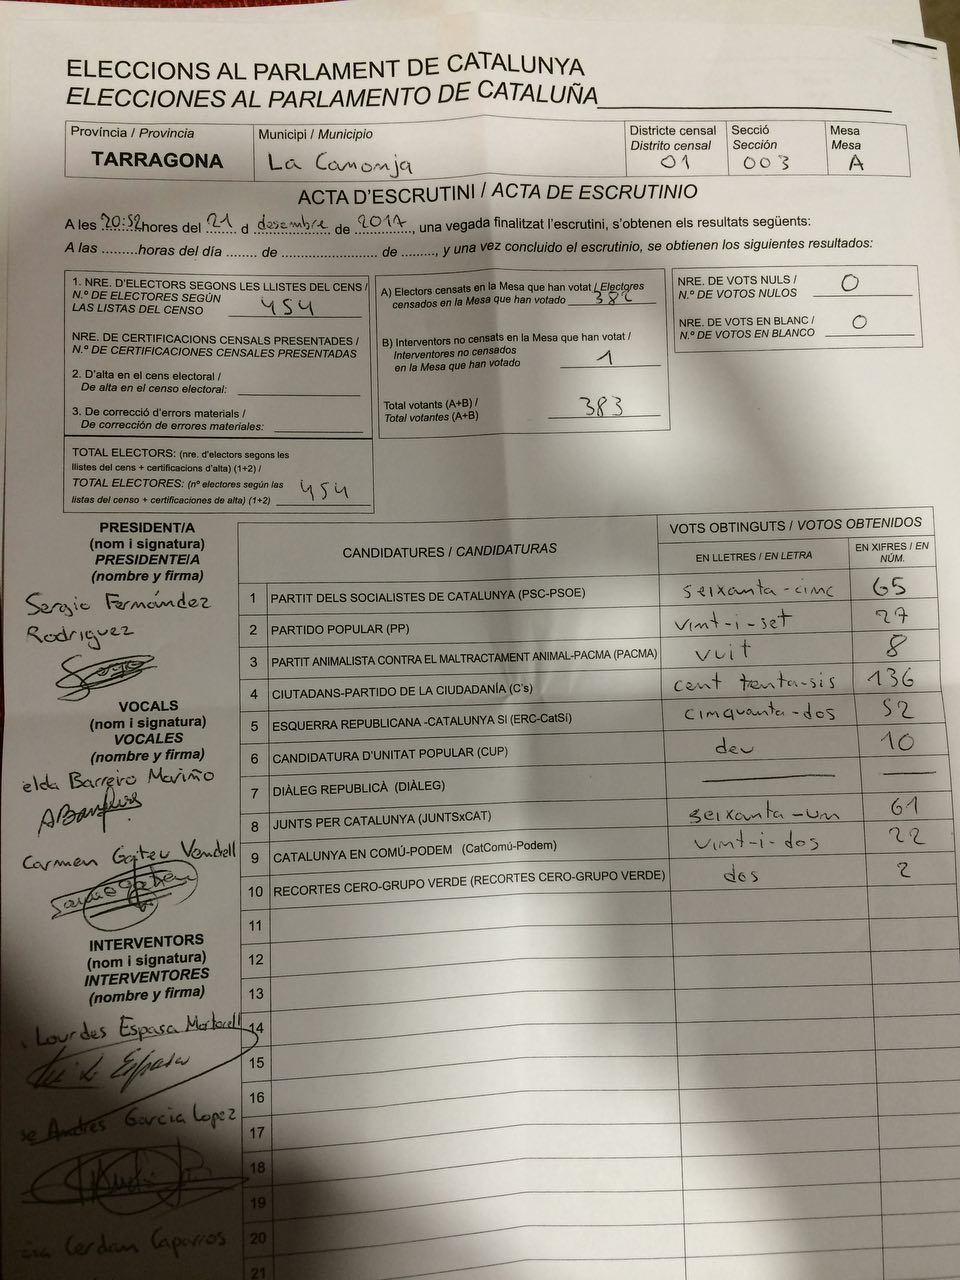 ELECCIONS AL PARLAMENT DE CATALUNYA
ELECCIONES AL PARLAMENTO DE CATALUÑA
Província / Provincia
TARRAGONA
Municipi / Municipio
La Canonja
Districte censal
Distrito censal
01
Secció
Sección
003
Mesa
Mesa
A
ACTA D'ESCRUTINI / ACTA DE ESCRUTINIO
A les 20:52 hores del 21 d desembre de 2017, una vegada finalitzat l'escrutini, s'obtenen els resultats següents:
A las .........horas del día ........ de ......................... de ........., y una vez concluido el escrutinio, se obtienen los siguientes resultados:
1. NRE. D'ELECTORS SEGONS LES LLISTES DEL CENS /
N.º DE ELECTORES SEGÚN
LAS LISTAS DEL CENSO 454
NRE. DE CERTIFICACIONS CENSALS PRESENTADES /
N.º DE CERTIFICACIONES CENSALES PRESENTADAS
2. D'alta en el cens electoral /
De alta en el censo electoral:
3. De correcció d'errors materials /
De corrección de errores materiales:
TOTAL ELECTORS: (nre. d'electors segons les
llistes del cens + certificacions d'alta) (1+2) /
TOTAL ELECTORES: (nº electores según las
listas del censo + certificaciones de alta) (1+2) 454
A) Electors censats en la Mesa que han votat / Electores
censados en la Mesa que han votado 382
B) Interventors no censats en la Mesa que han votat /
Interventores no censados
en la Mesa que han votado 1
Total votants (A+B) /
Total votantes (A+B) 383
NRE. DE VOTS NULS /
N.º DE VOTOS NULOS 0
NRE. DE VOTS EN BLANC /
N.º DE VOTOS EN BLANCO 0
PRESIDENT/A
(nom i signatura)
PRESIDENTE/A
(nombre y firma)
Sergio Fernández
Rodriguez
VOCALS
(nom i signatura)
VOCALES
(nombre y firma)
elda Barreiro Mariño
Carmen Gateu Vendell
INTERVENTORS
(nom i signatura)
INTERVENTORES
(nombre y firma)
Lourdes Espasa
Andres Garcia Lopez
Cerdan Caparros
CANDIDATURES / CANDIDATURAS
VOTS OBTINGUTS / VOTOS OBTENIDOS
EN LLETRES / EN LETRA
EN XIFRES / EN
NÚM.
1 PARTIT DELS SOCIALISTES DE CATALUNYA (PSC-PSOE) seixanta-cinc 65
2 PARTIDO POPULAR (PP) vint-i-set 27
3 PARTIT ANIMALISTA CONTRA EL MALTRACTAMENT ANIMAL-PACMA (PACMA) vuit 8
4 CIUTADANS-PARTIDO DE LA CIUDADANÍA (C's) cent trenta-sis 136
5 ESQUERRA REPUBLICANA -CATALUNYA SÍ (ERC-CatSí) cinquanta-dos 52
6 CANDIDATURA D'UNITAT POPULAR (CUP) deu 10
7 DIÀLEG REPUBLICÀ (DIÀLEG)
8 JUNTS PER CATALUNYA (JUNTSxCAT) seixanta-un 61
9 CATALUNYA EN COMÚ-PODEM (CatComú-Podem) vint-i-dos 22
10 RECORTES CERO-GRUPO VERDE (RECORTES CERO-GRUPO VERDE) dos 2
11
12
13
14
15
16
17
18
19
20
21